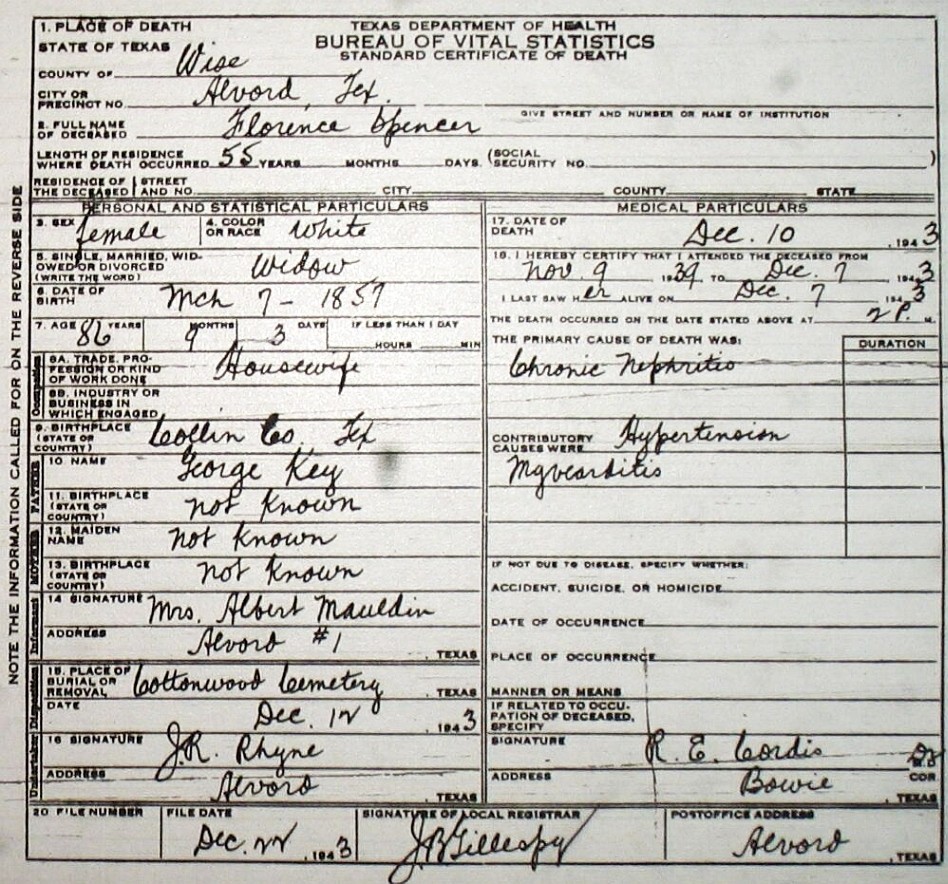 1. PLACE OF DEATH
STATE OF TEXAS
COUNTY OF Wise
CITY OR PRECINCT NO. Alvord, Tex.
TEXAS DEPARTMENT OF HEALTH
BUREAU OF VITAL STATISTICS
STANDARD CERTIFICATE OF DEATH
GIVE STREET AND NUMBER OR NAME OF INSTITUTION
2. FULL NAME OF DECEASED Florence Spencer
LENGTH OF RESIDENCE WHERE DEATH OCCURRED 55 YEARS MONTHS DAYS (SOCIAL SECURITY NO. )
RESIDENCE OF THE DECEASED STREET AND NO. CITY COUNTY STATE
PERSONAL AND STATISTICAL PARTICULARS
3. SEX female 4. COLOR OR RACE White
5. SINGLE, MARRIED, WIDOWED OR DIVORCED (WRITE THE WORD) Widow
6. DATE OF BIRTH Mch 7 - 1857
7. AGE 86 YEARS 9 MONTHS 3 DAYS IF LESS THAN 1 DAY HOURS MIN
Occupation
8A. TRADE, PROFESSION OR KIND OF WORK DONE Housewife
8B. INDUSTRY OR BUSINESS IN WHICH ENGAGED
9. BIRTHPLACE (STATE OR COUNTRY) Collin Co. Tex
FATHER
10. NAME George Key
11. BIRTHPLACE (STATE OR COUNTRY) not Known
MOTHER
12. MAIDEN NAME not Known
13. BIRTHPLACE (STATE OR COUNTRY) not Known
Informant
14 SIGNATURE Mrs. Albert Mauldin
ADDRESS Alvord #1, TEXAS
Disposition
15. PLACE OF BURIAL OR REMOVAL Cottonwood Cemetery, TEXAS
DATE Dec. 12, 1943
Undertaker
16 SIGNATURE J.R. Rhyne
ADDRESS Alvord, TEXAS
MEDICAL PARTICULARS
17. DATE OF DEATH Dec. 10, 1943
18. I HEREBY CERTIFY THAT I ATTENDED THE DECEASED FROM
Nov. 9 1939 TO Dec. 7 1943
I LAST SAW Her ALIVE ON Dec. 7 1943
THE DEATH OCCURRED ON THE DATE STATED ABOVE AT 2 P. M.
THE PRIMARY CAUSE OF DEATH WAS: DURATION
Chronic Nephritis
CONTRIBUTORY CAUSES WERE Hypertension
Myocarditis
IF NOT DUE TO DISEASE, SPECIFY WHETHER:
ACCIDENT, SUICIDE, OR HOMICIDE
DATE OF OCCURRENCE
PLACE OF OCCURRENCE
MANNER OR MEANS
IF RELATED TO OCCUPATION OF DECEASED, SPECIFY
SIGNATURE R. E. Cordis
ADDRESS Bowie COR. , TEXAS
20 FILE NUMBER
FILE DATE Dec. 22, 1943
SIGNATURE OF LOCAL REGISTRAR J B Gillespy
POSTOFFICE ADDRESS Alvord, TEXAS
NOTE THE INFORMATION CALLED FOR ON THE REVERSE SIDE